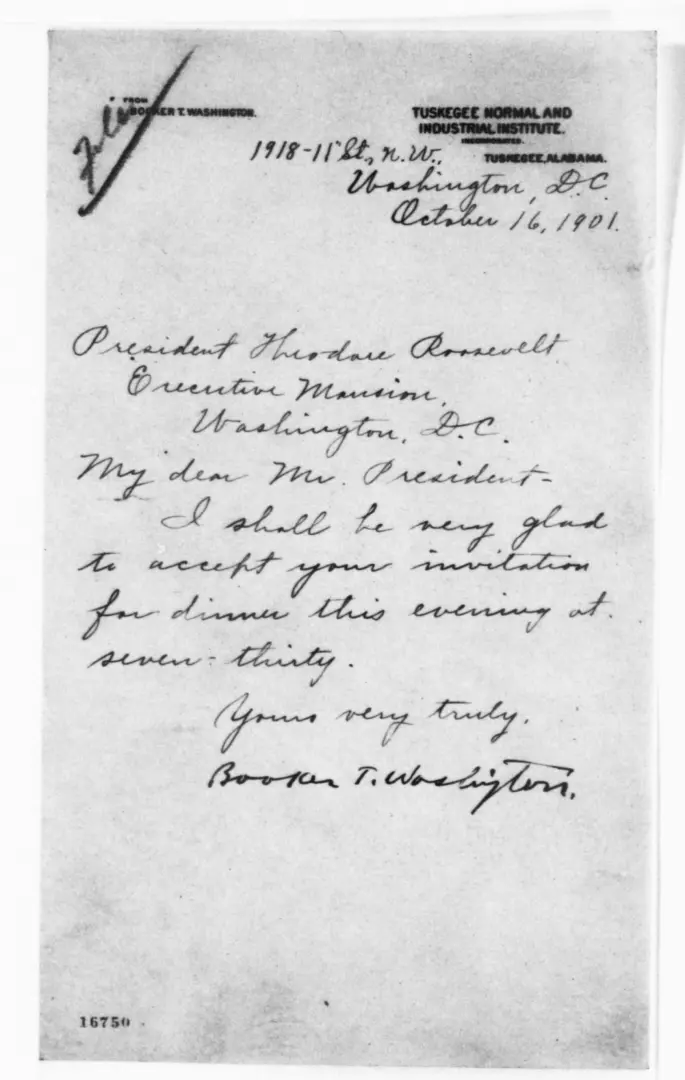 File
FROM
BOOKER T. WASHINGTON.
TUSKEGEE NORMAL AND
INDUSTRIAL INSTITUTE.
INCORPORATED.
TUSKEGEE, ALABAMA.
1918-11 St., N.W.,
Washington, D.C.
October 16, 1901.
President Theodore Roosevelt
Executive Mansion,
Washington, D.C.
My dear Mr. President-
I shall be very glad
to accept your invitation
for dinner this evening at
seven-thirty.
Yours very truly,
Booker T. Washington.
16750